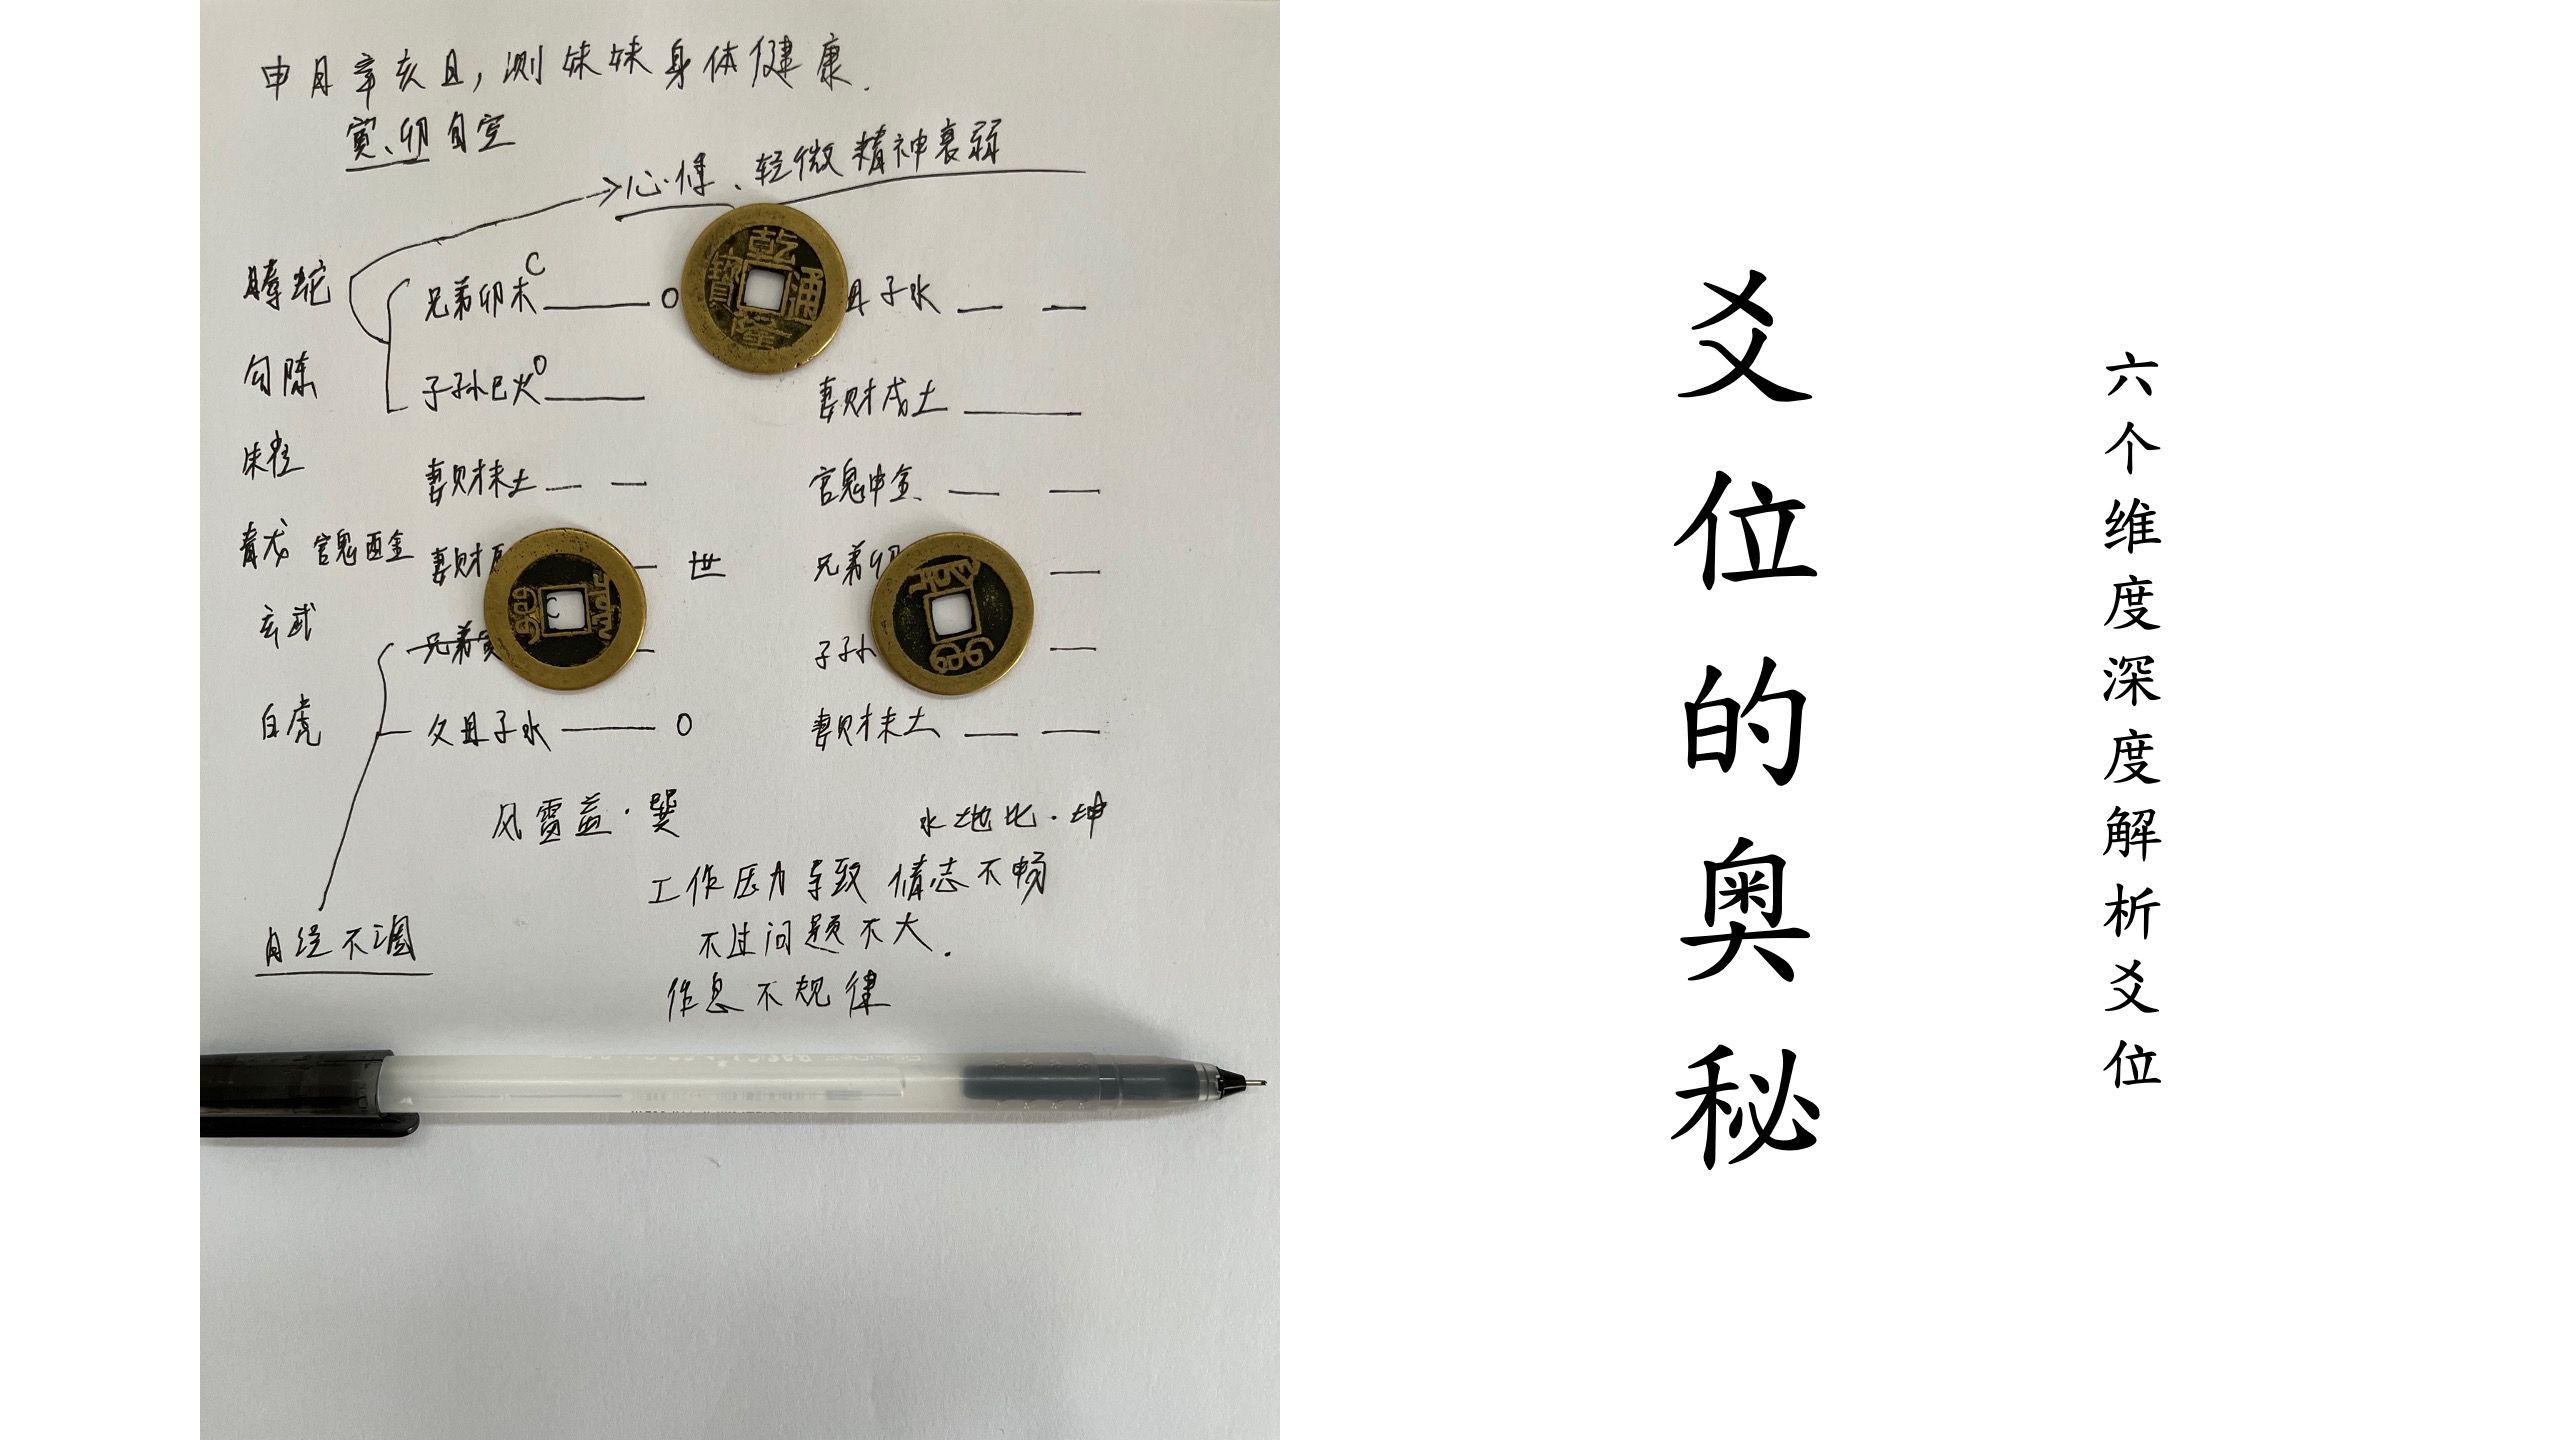 申月辛亥日，测妹妹身体健康.
寅、卯旬空
心悸、轻微精神衰弱
腾蛇 兄弟卯木 C O 母子水
勾陈 子孙巳火 O 妻财戌土
朱雀 妻财未土 官鬼申金
青龙 官鬼酉金 妻财 世 兄弟卯
玄武 兄弟寅 子孙
白虎 父母子水 O 妻财未土
风雷益·巽 水地比·坤
工作压力导致情志不畅
不过问题不大.
作息不规律
月经不调
乾隆通寶
爻位的奥秘
六个维度深度解析爻位